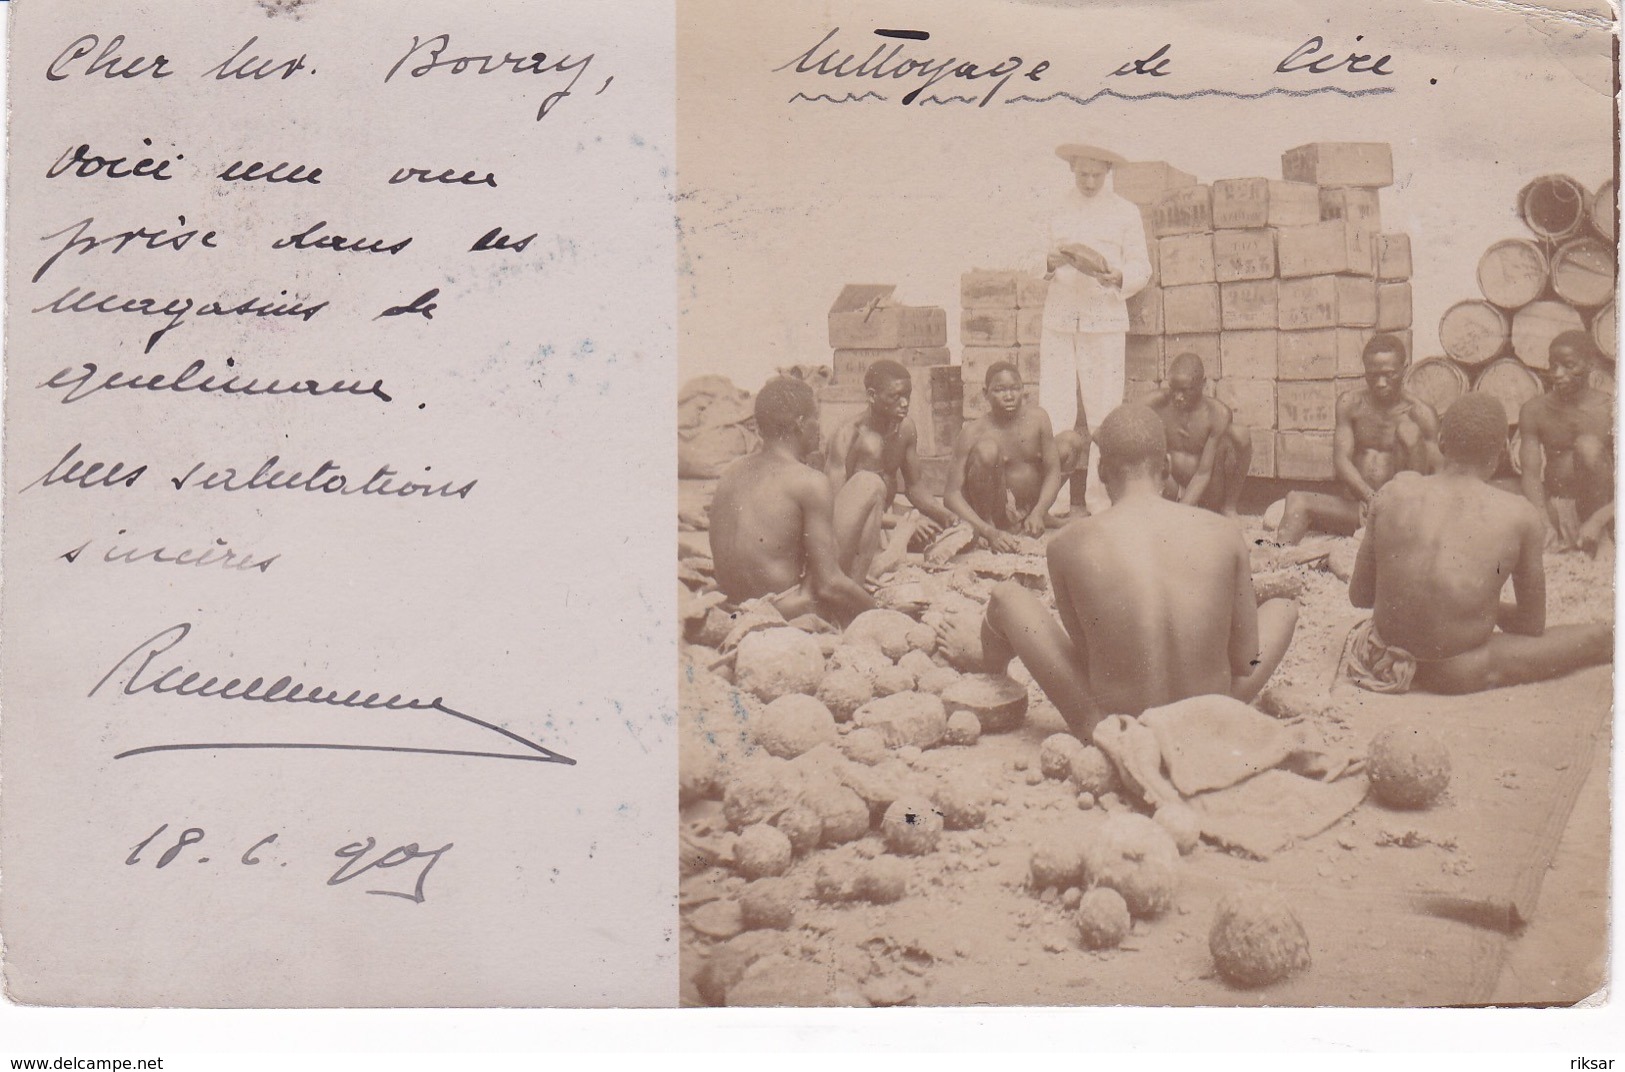 Cher Mr. Bovay,
Nettoyage de Cire.
Voici une vue
prise dans les
magasins de
Quelimane.
Mes salutations
sincères
18. 6. 905
www.delcampe.net
riksar